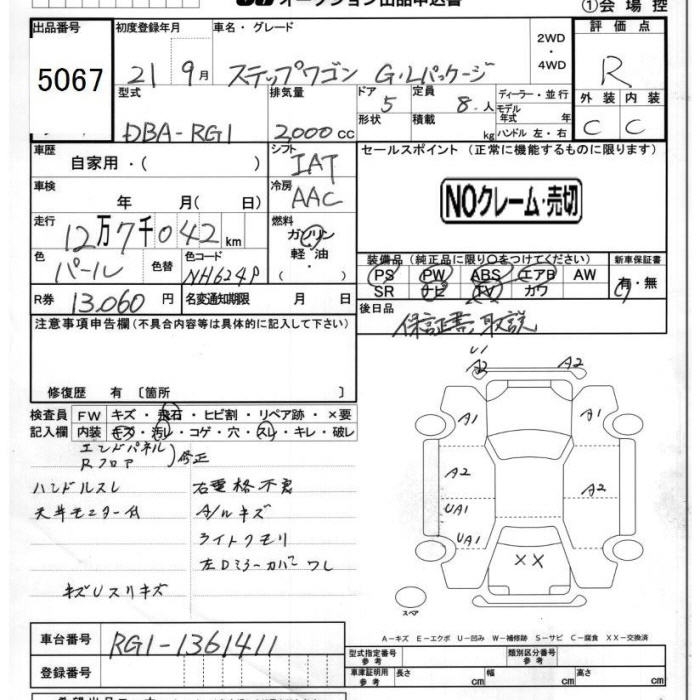 オークション出品申込書
①会場控
出品番号 初度登録年月 車名・グレード 2WD・4WD 評価点
5067 21 9月 ステップワゴン G・Lパッケージ R
型式 排気量 ドア 5 定員 8人 ディーラー・並行 外装 内装
DBA-RG1 2000cc 形状 積載 kg モデル年式 年 ハンドル 左・右 C C
車歴 自家用・( ) シフト IAT セールスポイント (正常に機能するものに限ります)
車検 年 月( 日) 冷房 AAC NOクレーム・売切
走行 12万7千042km 燃料 ガソリン・軽油・( )
色 パール 色替 色コード NH624P
装備品 (純正品に限り○をつけてください) 新車保証書
PS PW ABS エアB AW 有・無
SR ナビ TV カワ
R券 13,060円 名変通知期限 月 日 後日品 保証書、取説
注意事項申告欄 (不具合内容等は具体的に記入して下さい)
修復歴 有 [箇所 ]
検査員 FW キズ・飛石・ヒビ割・リペア跡・×要
記入欄 内装 キズ・汚レ・コゲ・穴・スレ・キレ・破レ
エンドパネル
Rフロア 修正
ハンドルスレ
天井モニター付
A/ルキズ
ライトクモリ
左Dミラーカバーワレ
キズUスリキズ
U1
A2 A2
A1 A1
A2 A2
UA1
UA1
××
スペア
A-キズ E-エクボ U-凹み W-補修跡 S-サビ C-腐食 XX-交換済
車台番号 RG1-1361411
登録番号
型式指定番号 参考 類別区分番号 参考
車庫証明用 参考 長さ cm 幅 cm 高さ cm